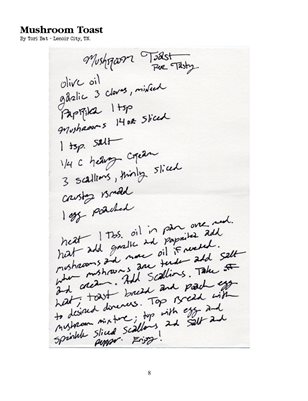 Mushroom Toast
By Tori Bat - Lenoir City, TN
Mushroom Toast
For Tasty
olive oil
garlic 3 cloves, minced
Paprika 1 tsp
mushrooms 14 oz sliced
1 tsp. salt
1/4 c heavy cream
3 scallions, thinly sliced
crusty bread
1 egg poached
heat 1 Tbs. oil in pan over med.
heat add garlic and paprika add
mushrooms and more oil if needed.
when mushrooms are tender add salt
and cream. Add scallions. Take off
heat, toast bread and poach egg
to desired doneness. Top bread with
mushroom mixture; top with egg and
sprinkle sliced scallions and salt and
pepper. Enjoy!
8